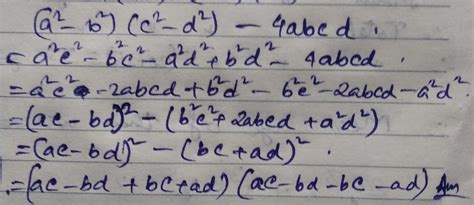 (a²-b²)(c²-d²) - 4abcd.
= a²c² - b²c² - a²d² + b²d² - 4abcd.
= a²c² - 2abcd + b²d² - b²c² - 2abcd - a²d².
= (ac - bd)² - (b²c² + 2abcd + a²d²)
= (ac - bd)² - (bc + ad)².
= (ac - bd + bc + ad) (ac - bd - bc - ad) Ans